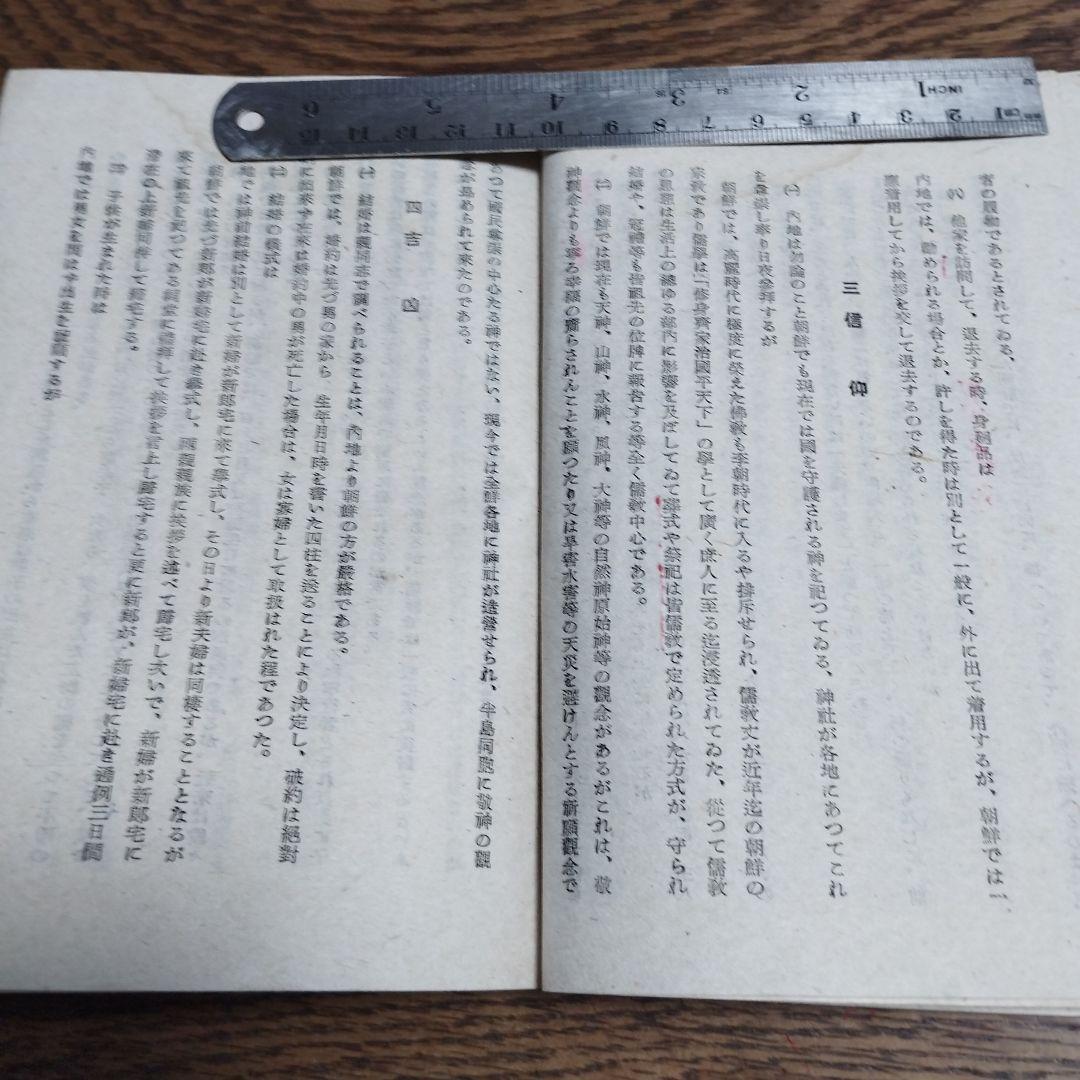 者の風習であるとされてゐる。
㈥ 他家を訪問して、退去する時、身廻品は
內地では、勸められる場合とか、許しを得た時は別として一般に、外に出て着用するが、朝鮮では一、
着用してから挨拶を交して退去するのである。
三 信 仰
㈠ 內地は勿論のこと朝鮮でも現在では國を守護される神を祀つてゐる、神社が各地にあつてこれ
を尊崇し寄り日夜參拜するが
朝鮮では、高麗時代に極度に榮えた佛敎も李朝時代に入るや排斥せられ、儒敎丈が近年迄の朝鮮の
宗敎であり儒學は「修身齊家治國平天下」の學として廣く庶人に至る迄浸透されてゐた、從つて儒敎
の思想は生活上の總ゆる部內に影響を及ぼしてゐて葬式や祭祀は皆儒敎で定められた方式が、守られ
結婚や、冠禮等も皆祖先の位牌に報告する等全く儒敎中心である。
㈡ 朝鮮では現在も天神、山神、水神、風神、大神等の自然神原始神等の觀念があるがこれは、敬
神觀念よりも寧ろ幸福の齎らされんことを願つたり又は旱害水害等の天災を避けんとする祈願觀念で
あつて國民敬崇の中心たる神ではない、現今では全鮮各地に神社が造營せられ、半島同胞に敬神の觀
念が高められて來たのである。
四 吉 凶
㈠ 結婚は親同志で調べられることは、內地より朝鮮の方が嚴格である。
朝鮮では、婚約は先づ男の家から 生年月日時を書いた四柱を送ることにより決定し、破約は絕對
に出來ず在來は婚約中の男が死亡した場合は、女は寡婦として取扱はれた程であつた。
㈡ 結婚の儀式は
內地では神前結婚は別として新婦が新郎宅に來て擧式し、その日より新夫婦は同棲することとなるが
朝鮮では先づ新郎が新婦宅に赴き擧式し、
宅の上新婦同伴して歸宅する。
㈢ 子供が生まれた時は